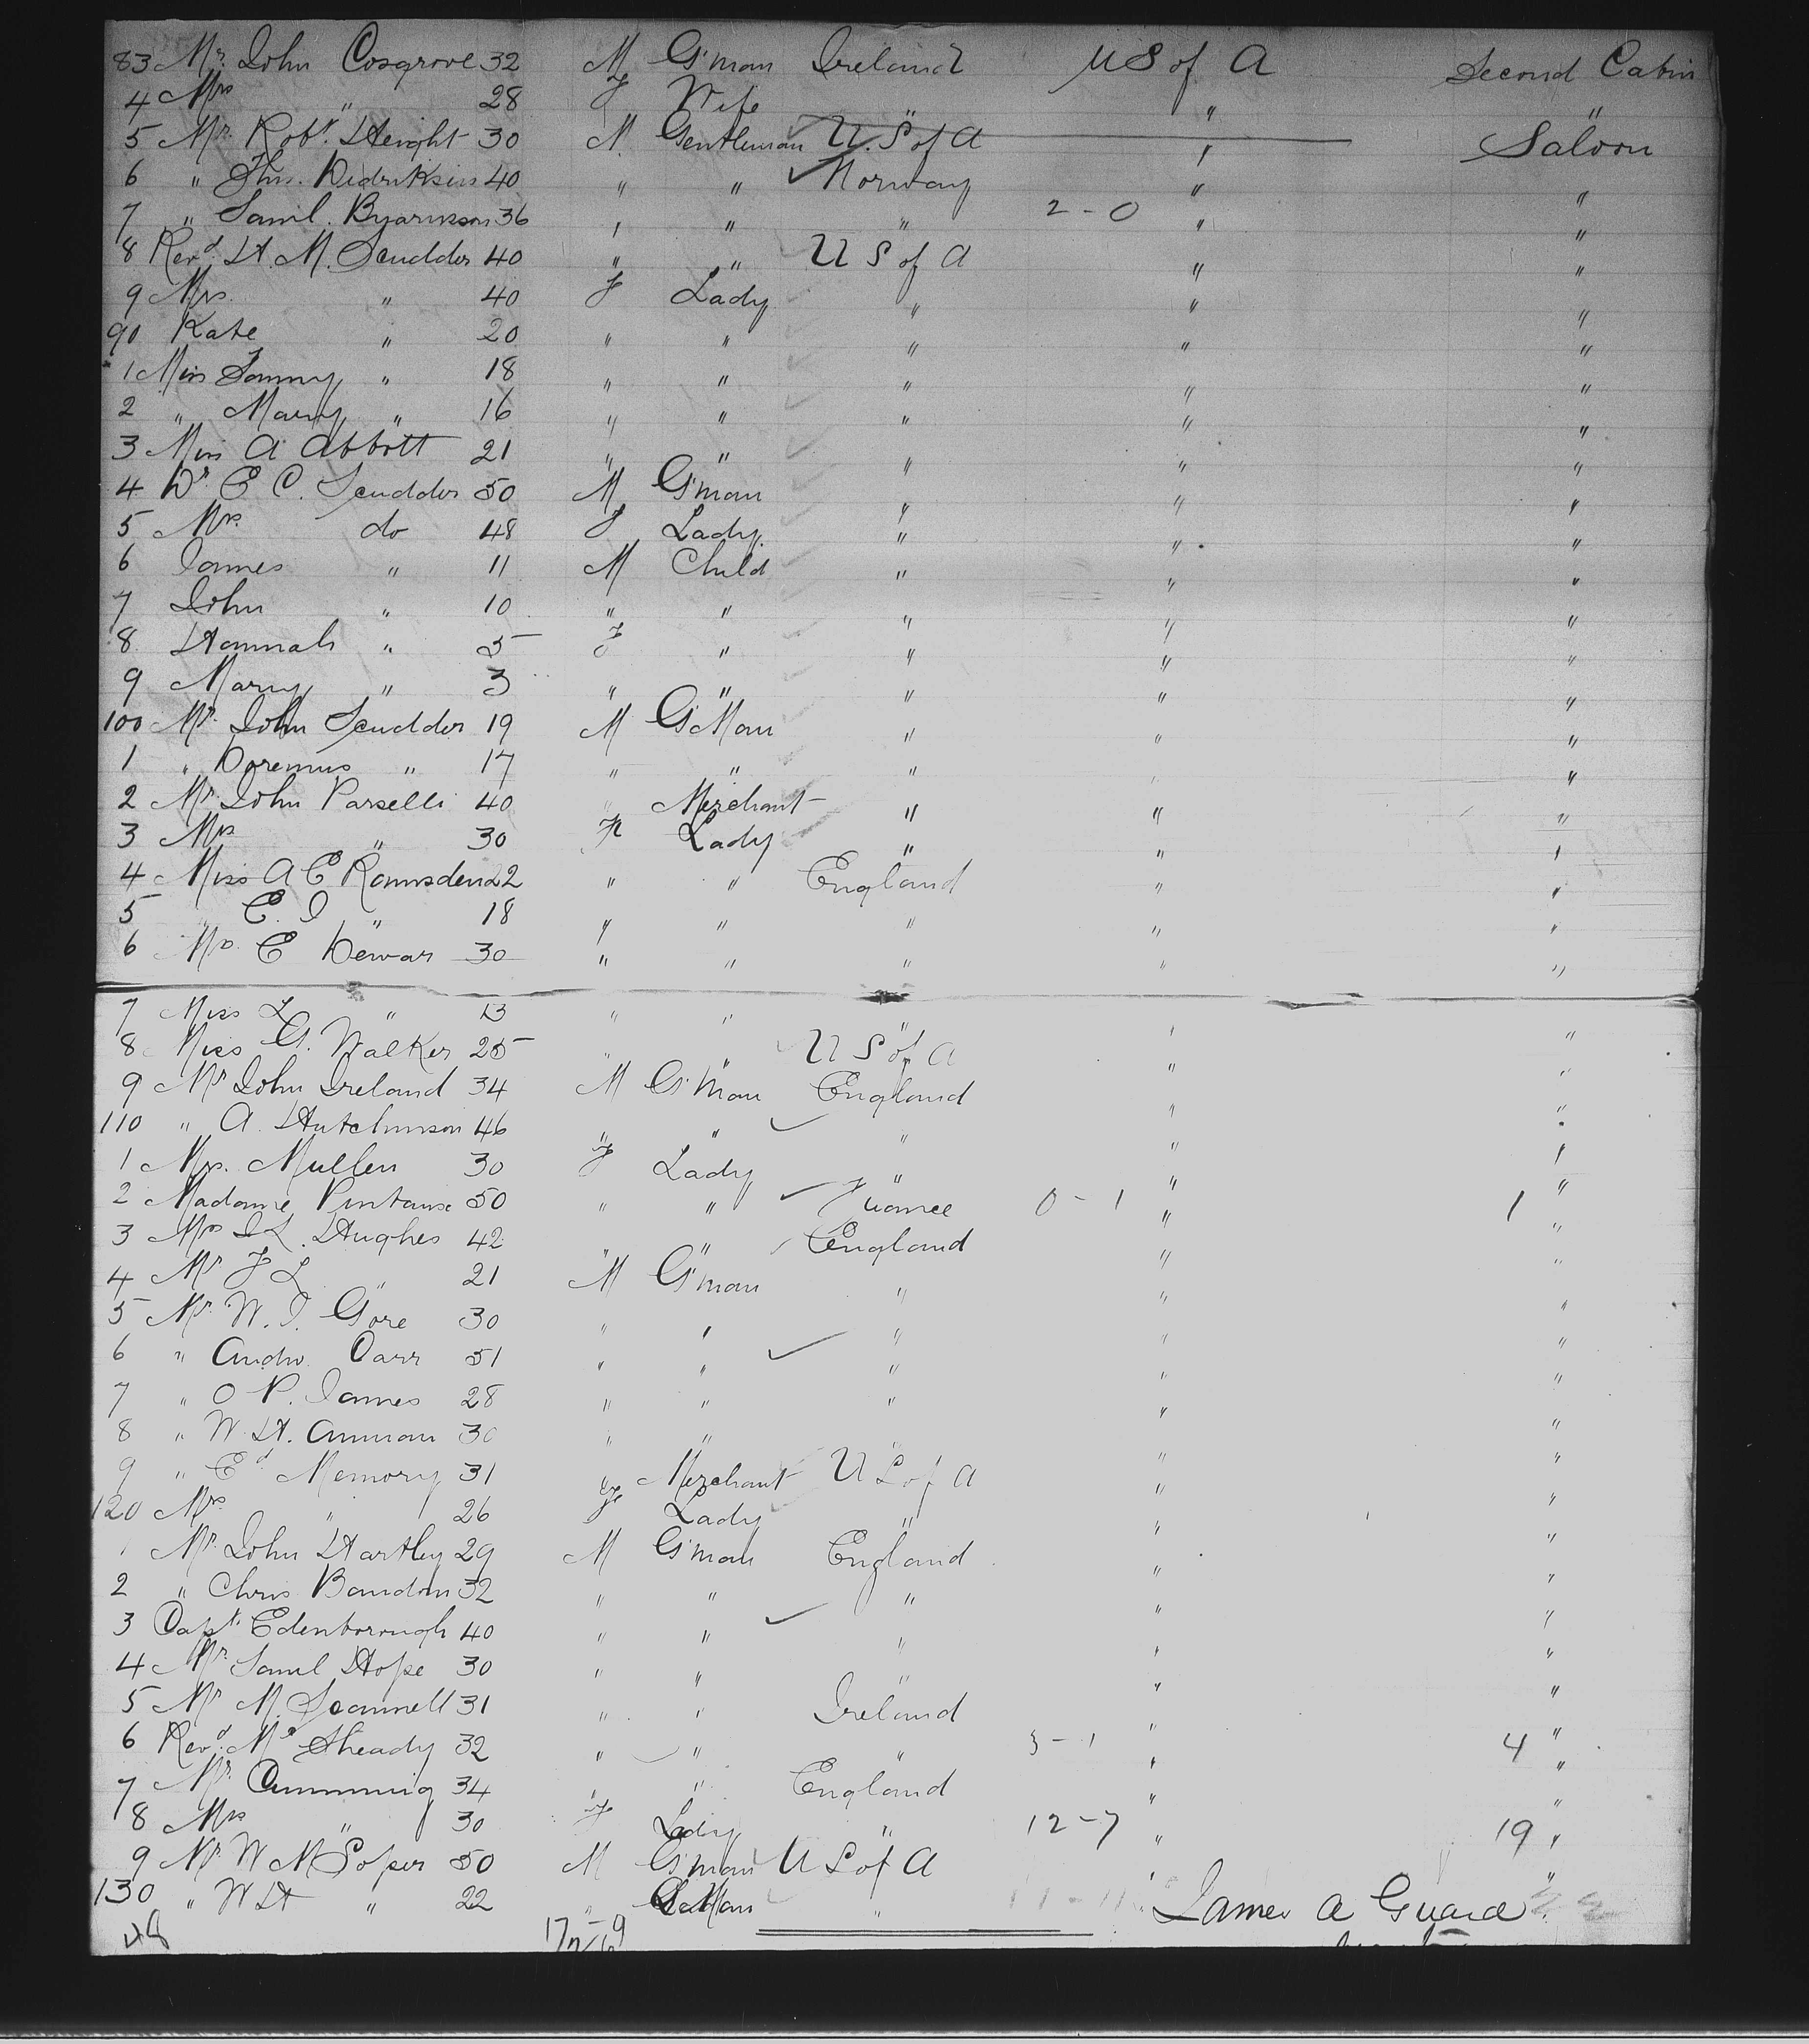 83 Mr. John Cosgrove 32 M G'man Ireland U S of A Second Cabin
4 Mrs " 28 F Wife " " "
5 Mr. Robt. Height 30 M. Gentleman U. S of A " Saloon
6 " Thos. Didriksen 40 " " Norway " "
7 " Saml. Byarnson 36 " " " 2 - 0 " "
8 Revd. H. M. Scudder 40 " " U S of A " "
9 Mrs. " 40 F Lady " " "
90 Kate " 20 " " " " "
1 Miss Fanny " 18 " " " " "
2 " Mary " 16 " " " " "
3 Miss A Abbott 21 " " " " "
4 Dr. E C. Scudder 50 M G'man " " "
5 Mrs. do 48 F Lady. " " "
6 James " 11 M Child " " "
7 John " 10 " " " " "
8 Hannah " 5 F " " " "
9 Mary " 3 " " " " "
100 Mr. John Scudder 19 M G'Man " " "
1 " Doremus " 17 " " " "
2 Mr. John Parselli 40 " Merchant " " "
3 Mrs " 30 F Lady " " "
4 Miss A E Ramsden 22 " " England " "
5 " E. J " 18 " " " " "
6 Mrs. E Dewar 30 " " " " "
7 Miss L " 13 " " " " "
8 Miss G. Walker 25 " " U S of A " "
9 Mr John Ireland 34 M G'man England " "
110 " A. Hutchinson 46 " " " " "
1 Mrs. Mullen 30 F Lady " " "
2 Madame 50 " " France 0 - 1 " 1
3 Mrs J L. Hughes 42 " " England " "
4 Mr F L " 21 M G'man " " "
5 Mr. W. J. Gore 30 " " " " "
6 " Andw. Carr 51 " " " " "
7 " O P. James 28 " " " " "
8 " W. H. Amman 30 " " " " "
9 " Ed Memory 31 " Merchant U S of A " "
120 Mrs " 26 F Lady " " "
1 Mr. John Hartley 29 M G'man England " "
2 " Chris 32 " " " " "
3 Capt. Edenborough 40 " " " " "
4 Mr. Saml Hope 30 " " " " "
5 Mr M. Scannell 31 " " Ireland " "
6 Revd. Mr Sheady 32 " " " 3 - 1 " 4 "
7 Mr. Cumming 34 " " England " "
8 Mrs " 30 F Lady " 12 - 7 " 19 "
9 Mr. W M Soper 50 M G'man U S of A " "
130 " W H " 22 " G'Man " 11 - 11 James A Guard
48 17 - 9